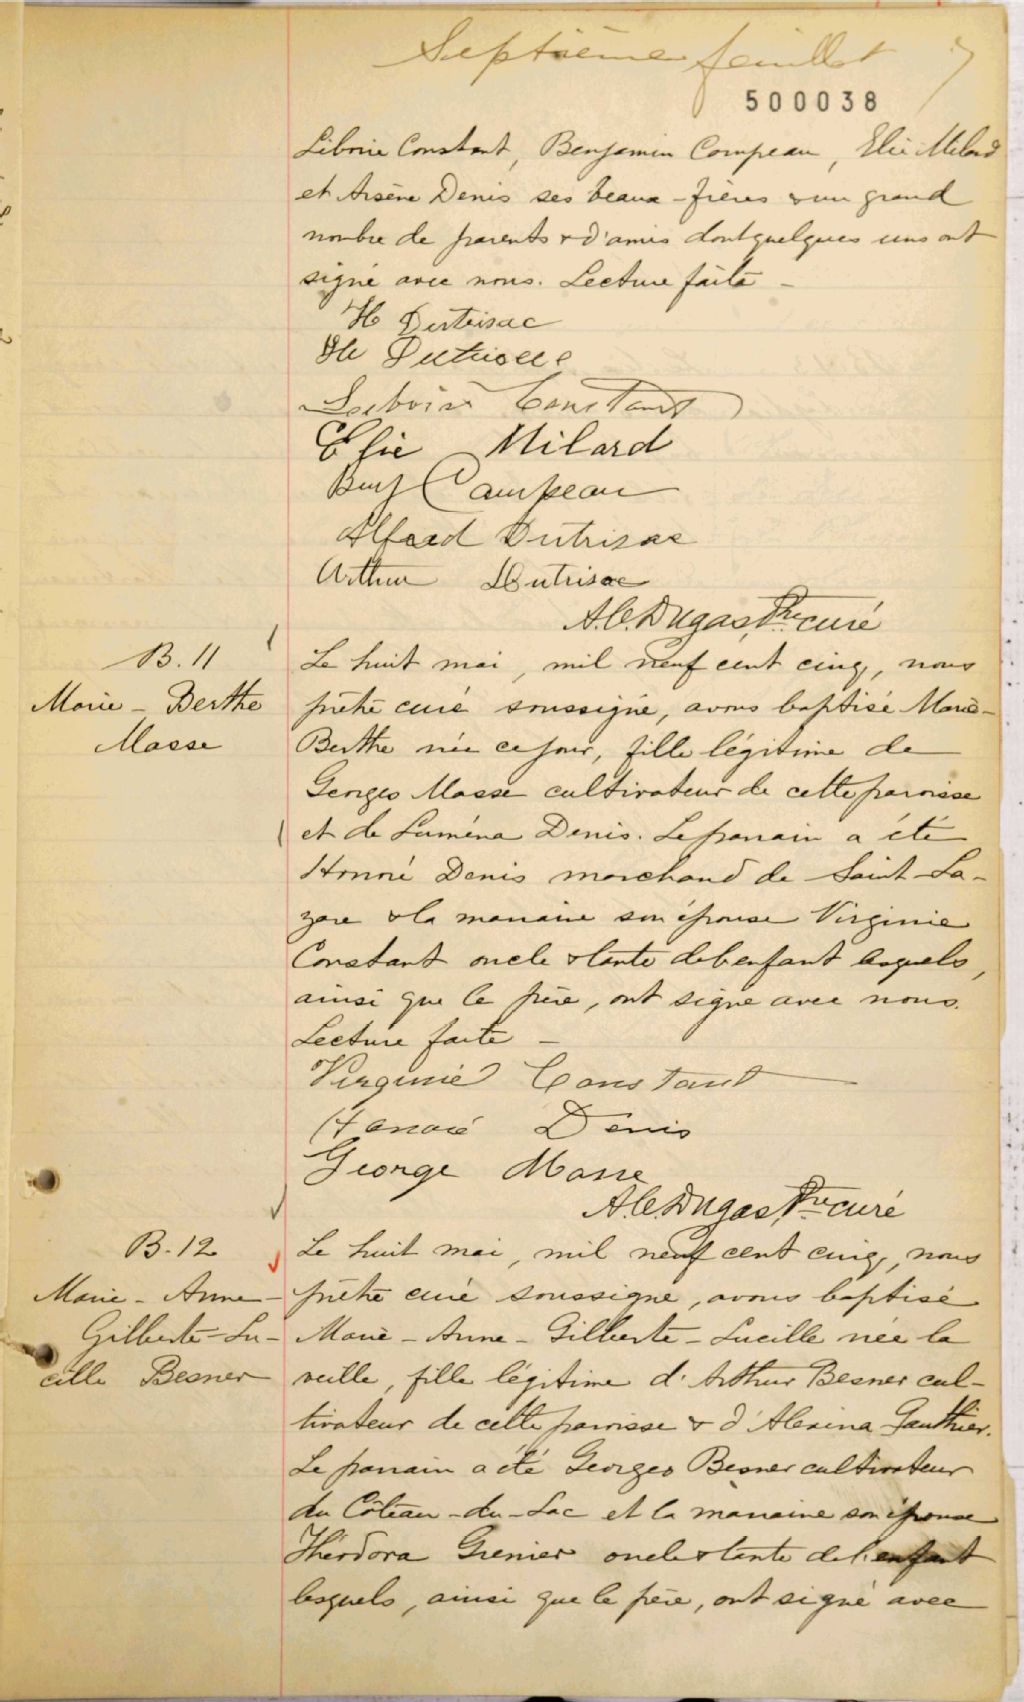 Septième feuillet 7
500038
Liborie Constant, Benjamin Compeau, Elie Milard
et Arsène Denis ses beaux-frères & un grand
nombre de parents & d'amis dont quelques uns ont
signé avec nous. Lecture faite –
H Dutrisac
Constant
Elie Milard
Benj Campeau
Alfred Dutrisac
Arthur Dutrisac
A.C. Dugas, Ptre curé
B. 11
Marie - Berthe
Masse
Le huit mai, mil neuf cent cinq, nous
prêtre curé soussigné, avons baptisé Marie-
Berthe née ce jour, fille légitime de
Georges Masse cultivateur de cette paroisse
et de Luména Denis. Le parrain a été
Honoré Denis marchand de Saint-La-
zare & la marraine son épouse Virginie
Constant oncle & tante de l'enfant lesquels,
ainsi que le père, ont signé avec nous.
Lecture faite –
Virginie Constant
Honoré Denis
George Masse
A.C. Dugas, Ptre curé
B. 12
Marie - Anne -
Gilberte - Lu-
cille Besner
Le huit mai, mil neuf cent cinq, nous
prêtre curé soussigné, avons baptisé
Marie - Anne - Gilberte - Lucille née la
veille, fille légitime d'Arthur Besner cul-
tivateur de cette paroisse & d'Alexina Gauthier.
Le parrain a été Georges Besner cultivateur
du Côteau-du-Lac et la marraine son épouse
Théodora Grenier oncle & tante de l'enfant
lesquels, ainsi que le père, ont signé avec